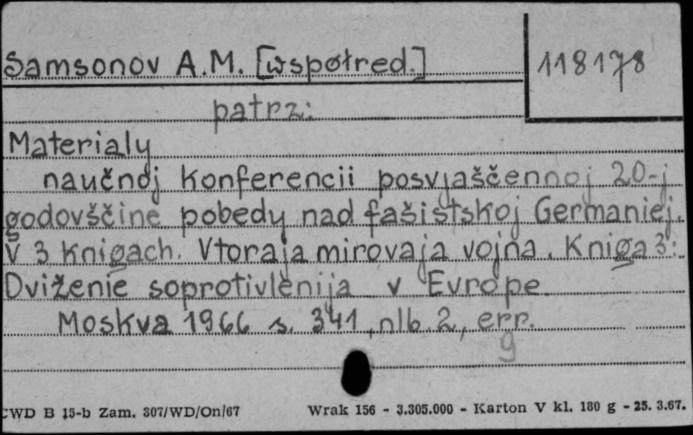 Samsonov A.M. [współred.]
118178
patrz:
Materialy
naučnoj konferencii posvjaščennoj 20-j
godovščine pobedy nad fašistskoj Germaniej.
V 3 knigach. Vtoraja mirovaja vojna. Kniga 3:
Dviženie soprotivlenija v Evrope
Moskva 1966 s. 341, nlb. 2, err.
9
CWD B 15-b Zam. 307/WD/On/67 Wrak 156 - 3.305.000 - Karton V kl. 180 g - 25. 3.67.